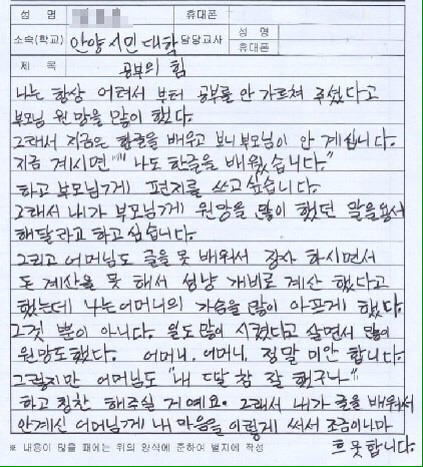 성 명 휴대폰
소속(학교) 안양시민대학 담당교사 성 명
휴대폰
제 목 공부의 힘
나는 항상 어려서 부터 공부를 안 가르쳐 주셨다고
부모님 원망을 많이 했다.
그래서 지금은 한글을 배우고 보니 부모님이 안 계십니다.
지금 계시면 "나도 한글을 배웠습니다."
하고 부모님게 편지를 쓰고 싶습니다.
그래서 내가 부모님게 원망을 많이 했던 말을 용서
해달라고 하고 싶습니다.
그리고 어머님도 글을 못 배워서 장사 하시면서
돈 계산을 못 해서 성냥 개비로 계산 했다고
했는데 나는 어머니의 가슴을 많이 아프게 했다.
그것 뿐이 아니다. 일도 많이 시켰다고 살면서 많이
원망도 했다. 어머니, 어머니, 정말 미안 합니다.
그렇지만 어머님도 "내 딸 참 잘 했구나"
하고 칭찬 해주실 거예요. 그래서 내가 글을 배워서
안계신 어머님게 내 마음을 이렇게 써서 조금이나마
흐뭇합니다.
※ 내용이 많을 때에는 위의 양식에 준하여 별지에 작성